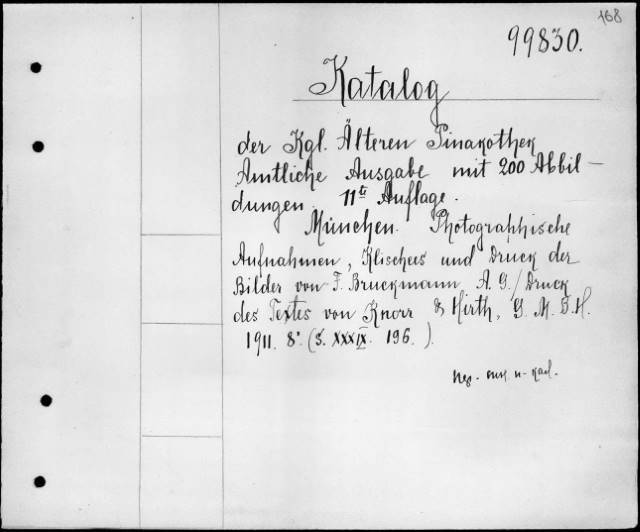 168
99830.
Katalog
der Kgl. Älteren Pinakothek
Amtliche Ausgabe mit 200 Abbil-
dungen. 11te Auflage.
München. Photographische
Aufnahmen, Klischees und Druck der
Bilder von F. Bruckmann A. G./Druck
des Textes von Knorr & Hirth, G. M. B. H.
1911. 8°. (S. XXXIX. 196.).